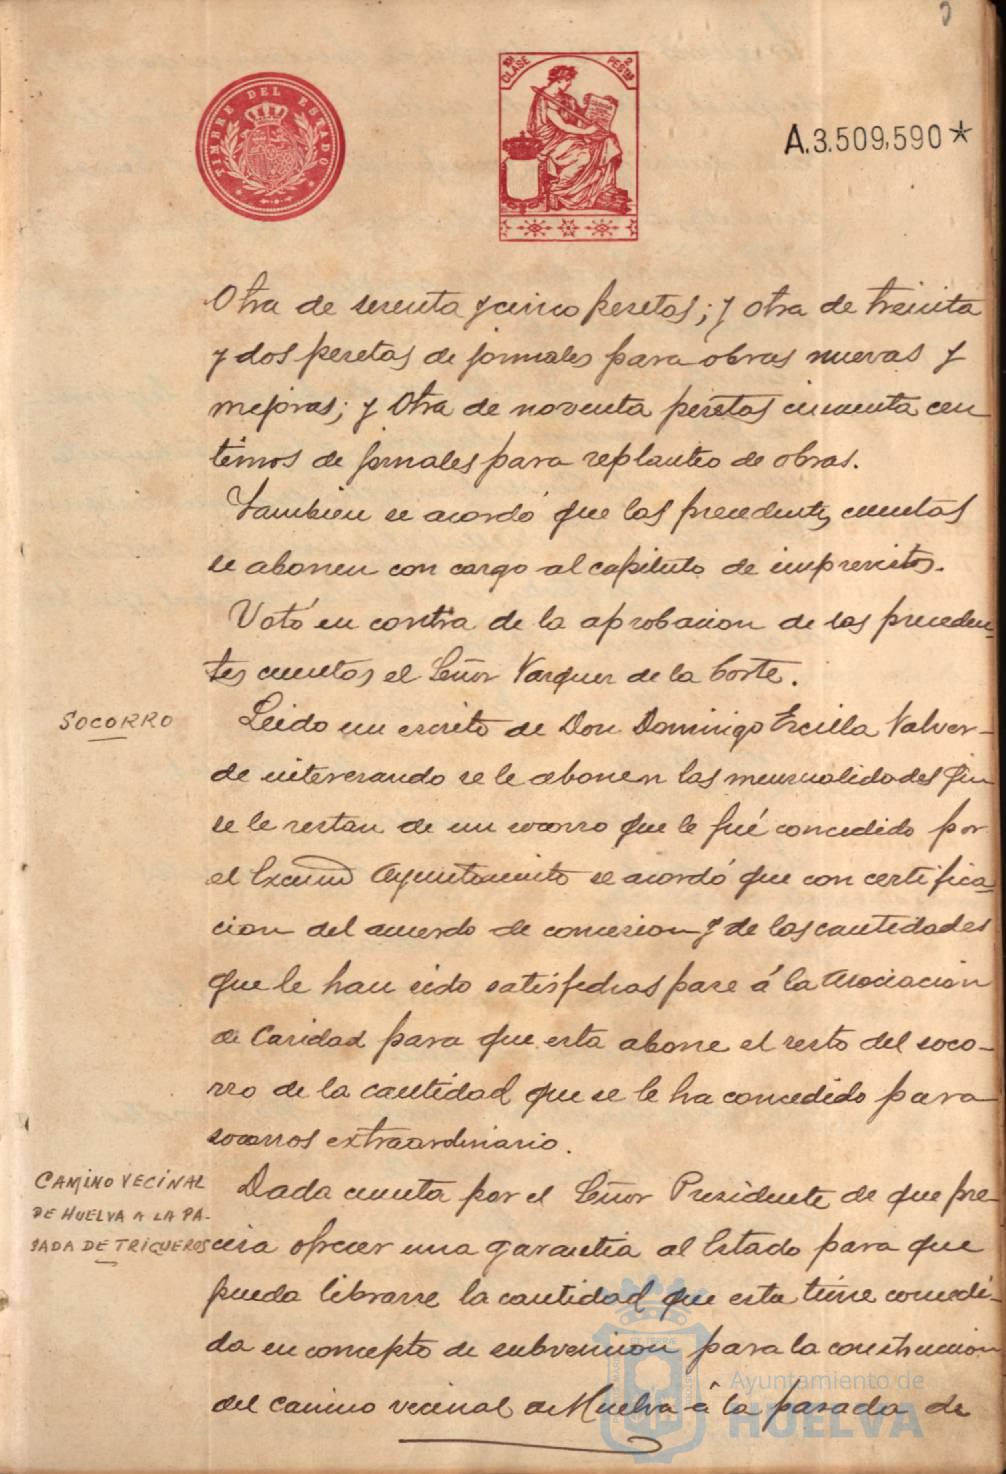 TIMBRE DEL ESTADO
10ª CLASE
2 PESTAS
A.3.509,590*
Otra de sesenta y cinco pesetas; y otra de treinta
y dos pesetas de jornales para obras nuevas y
mejoras; y Otra de noventa pesetas cincuenta cen
timos de jornales para replanteo de obras.
Tambien se acordó que las precedentes cuentas
se abonen con cargo al capitulo de imprevistos.
Votó en contra de la aprobacion de las preceden-
tes cuentas el Señor Vazquez de la Corte.
SOCORRO
Leido un escrito de Don Domingo Ercilla Valver-
de interesando se le abonen las mensualidades que
se le restan de un socorro que le fué concedido por
el Excmo Ayuntamiento se acordó que con certifica-
cion del acuerdo de concesion y de las cantidades
que le han sido satisfechas pase á la Asociacion
de Caridad para que esta abone el resto del soco-
rro de la cantidad que se le ha concedido para
socorros extraordinario.
CAMINO VECINAL
DE HUELVA A LA PA-
SADA DE TRIGUEROS
Dada cuenta por el Señor Presidente de que pre-
cisa ofrecer una garantia al Estado para que
pueda librarse la cantidad que esta tiene concedi-
da en concepto de subvencion para la construccion
del camino vecinal de Huelva á la pasada de
Ayuntamiento de
HUELVA